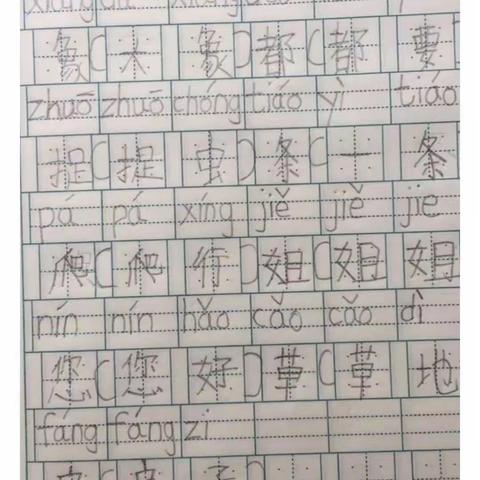 象(大象)都(都要
zhuō zhuō chóng tiáo yì tiáo
捉(捉虫)条(一条
pá pá xíng jiě jiě jie
爬(爬行)姐(姐姐
nín nín hǎo cǎo cǎo dì
您(您好)草(草地
fáng fáng zi